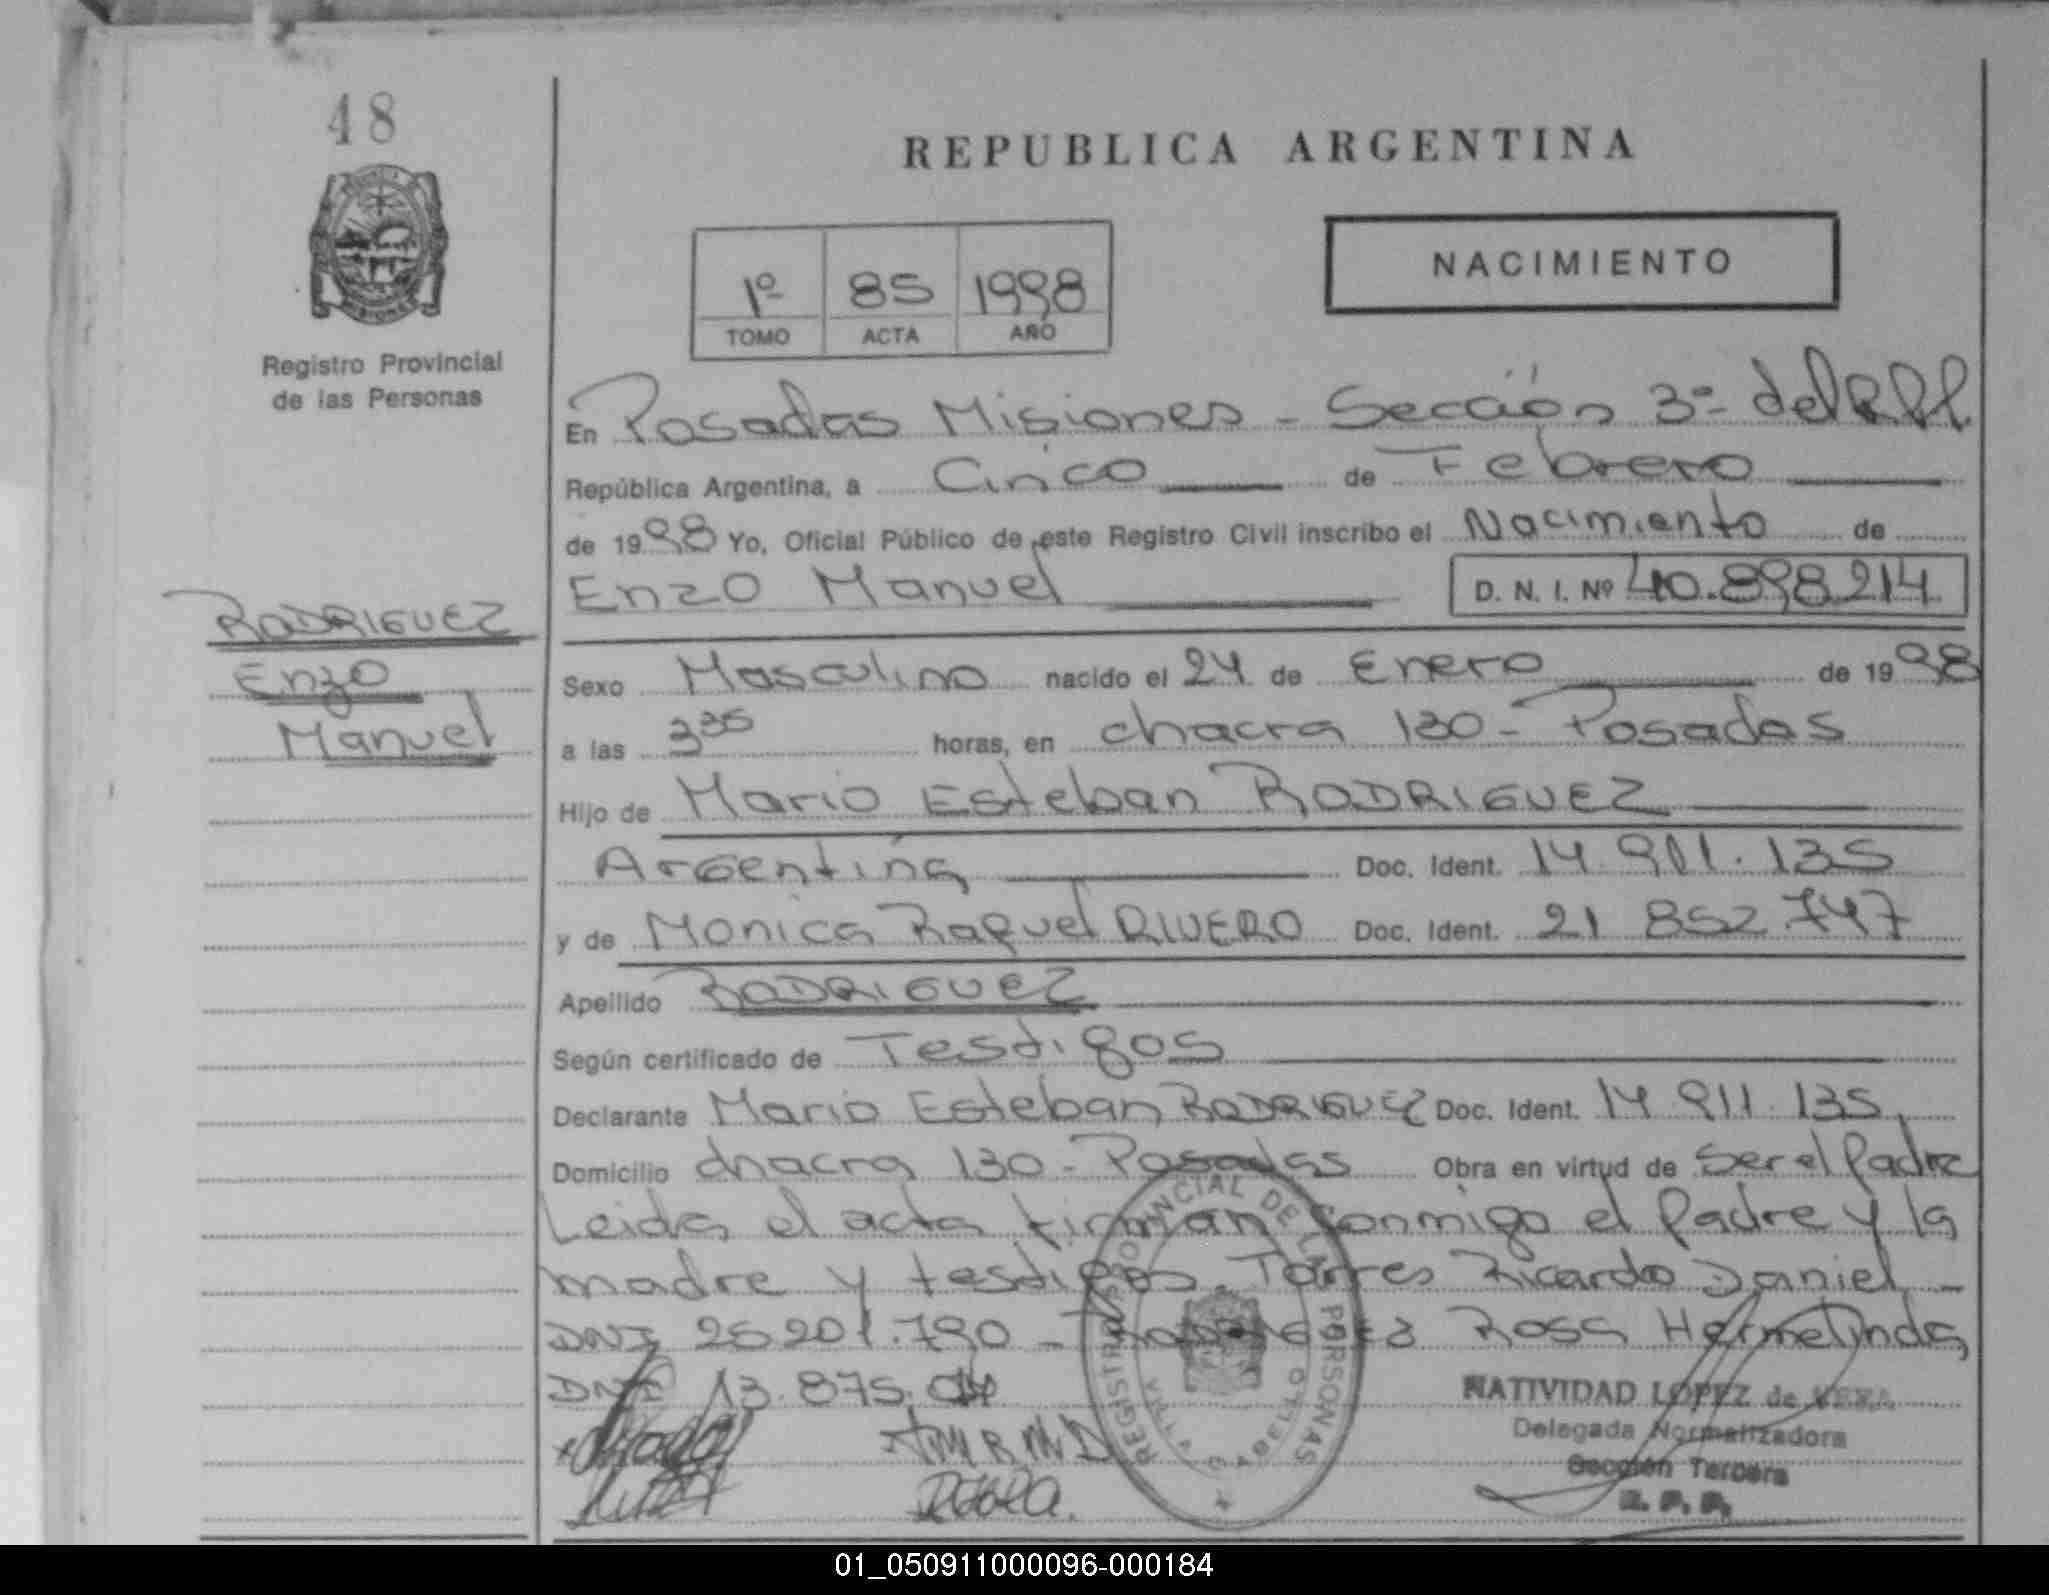 48
REPUBLICA ARGENTINA
NACIMIENTO
1º 85 1998
TOMO ACTA AÑO
Registro Provincial
de las Personas
En Posadas Misiones - Sección 3ª del R.P.P.
República Argentina, a Cinco de Febrero
de 1998 Yo, Oficial Público de este Registro Civil inscribo el Nacimiento de
Enzo Manuel D. N. I. Nº 40.898.214
RODRIGUEZ
Enzo
Manuel
Sexo Masculino nacido el 24 de Enero de 1998
a las 3 35 horas, en chacra 130 - Posadas
Hijo de Mario Esteban RODRIGUEZ
Argentina Doc. Ident. 14.901.135
y de Monica Raquel RIVERO Doc. Ident. 21 852.747
Apellido RODRIGUEZ
Según certificado de Testigos
Declarante Mario Esteban RODRIGUEZ Doc. Ident. 14 911.135
Domicilio chacra 130 - Posadas Obra en virtud de Ser el Padre
Leida el acta firman conmigo el Padre y la
madre y testigos. Torres Ricardo Daniel -
DNI 26201.790 - Rosa Hermelinda
DNI 13.875.
REGISTRO PROVINCIAL DE LAS PERSONAS
VILLA CABELLO
NATIVIDAD LOPEZ de
Delegada Normalizadora
Sección Tercera
R. P. P.
01_050911000096-000184